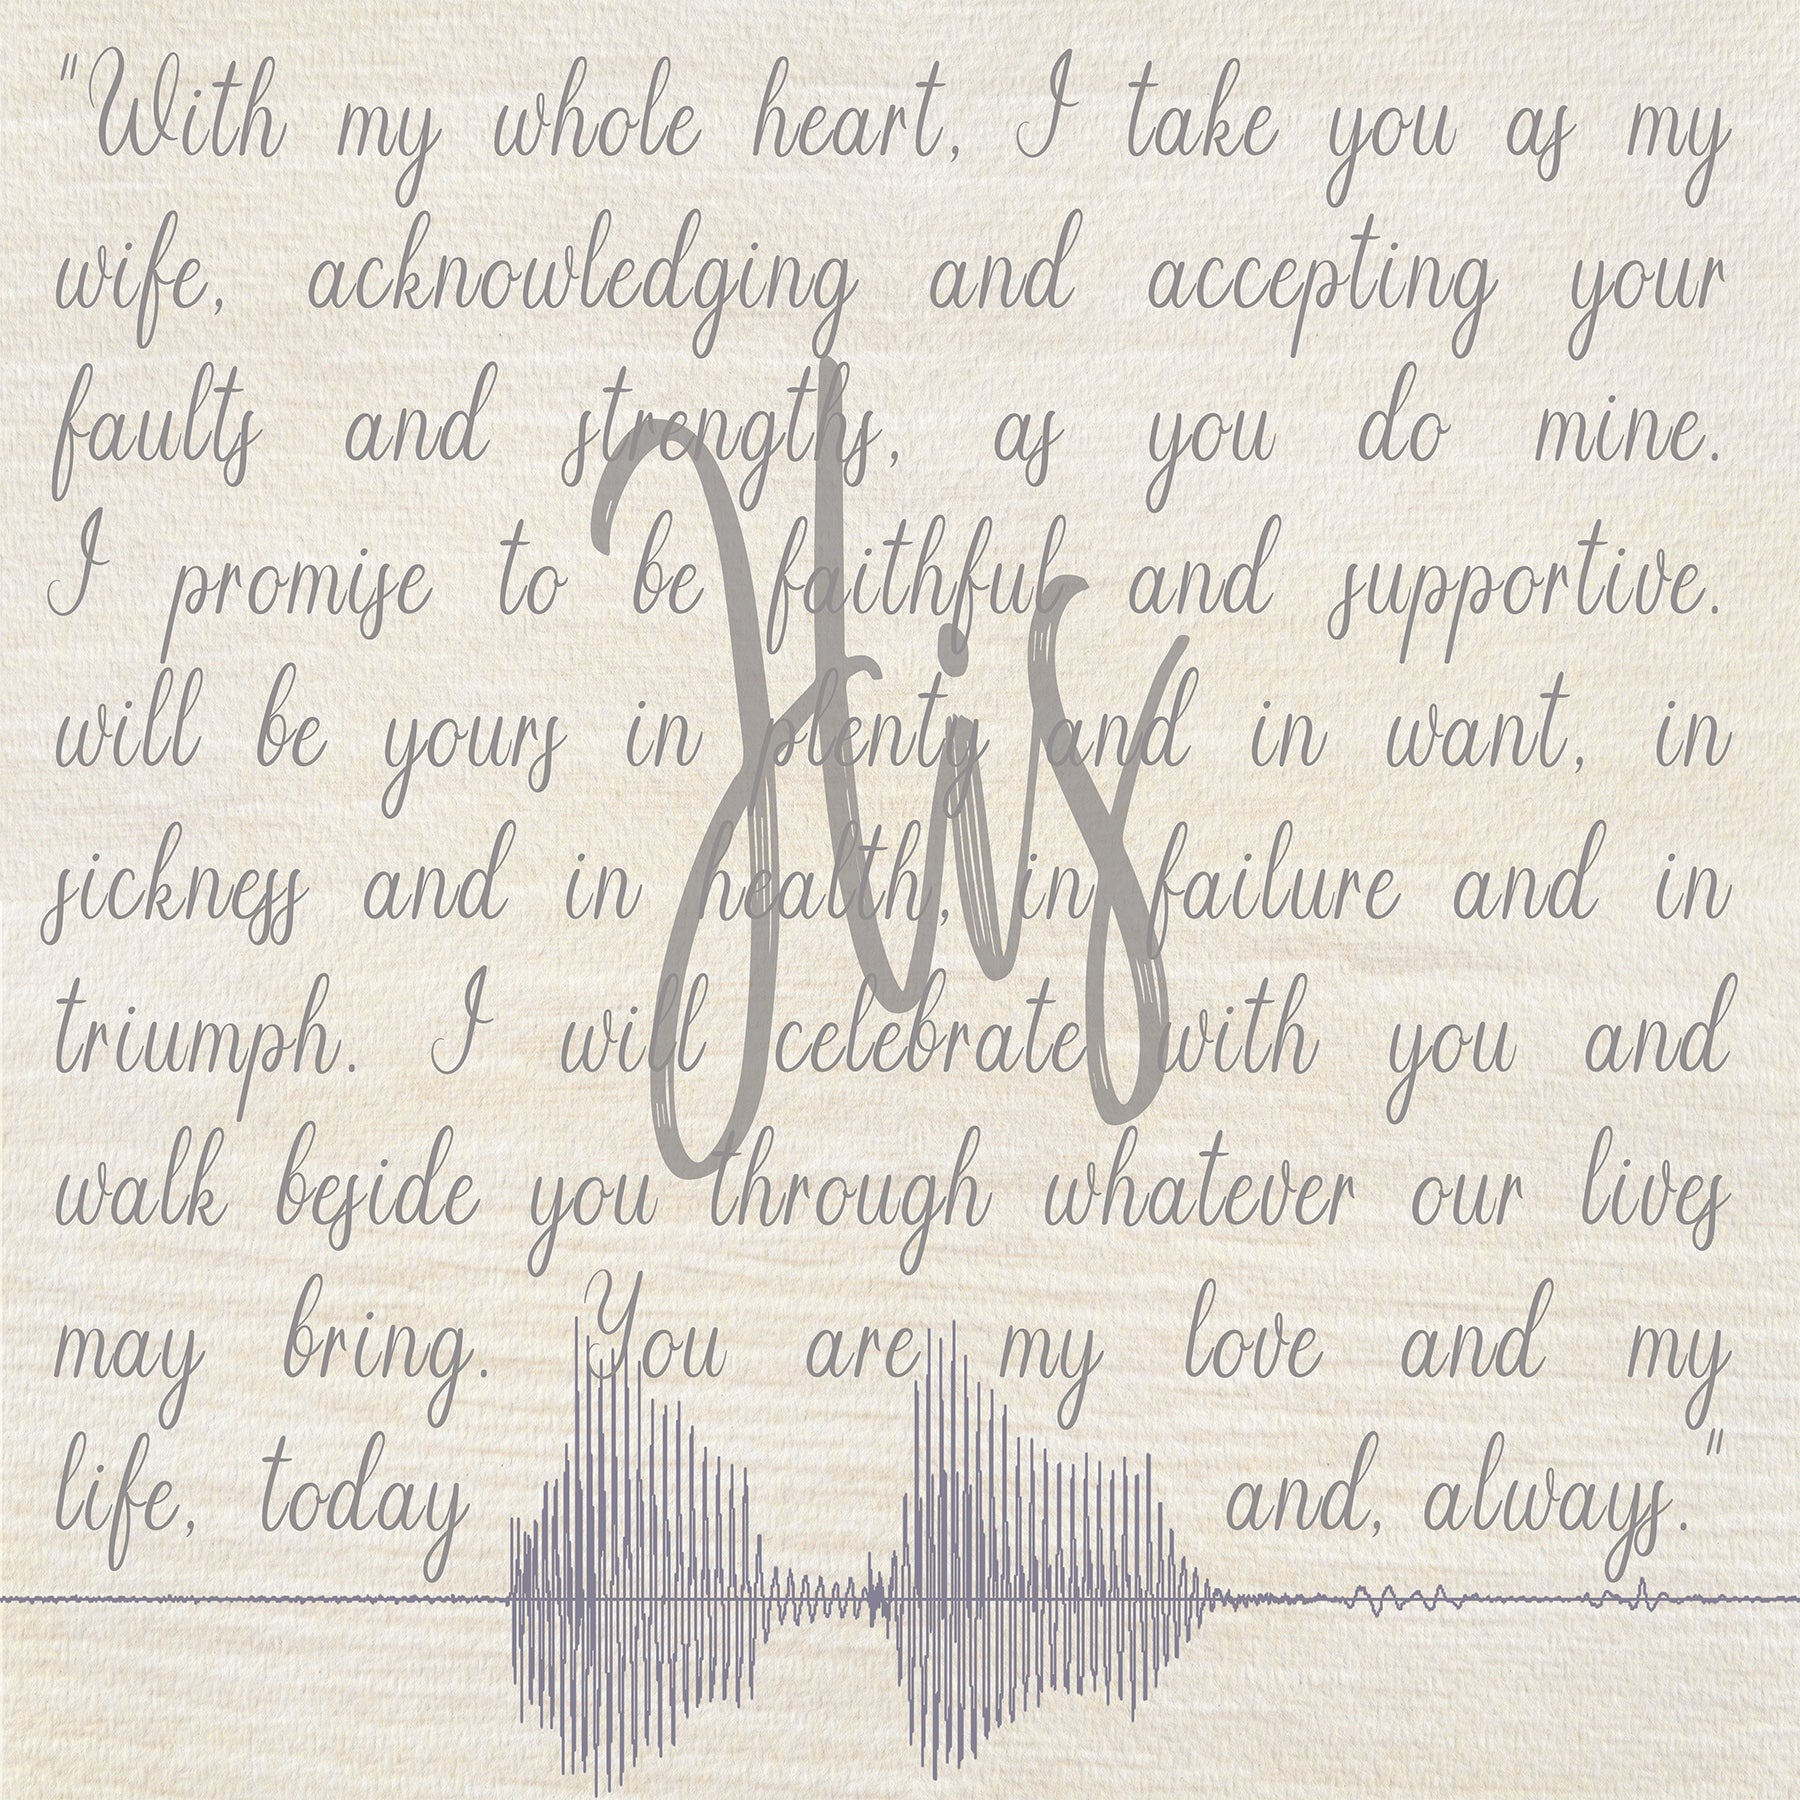 "With my whole heart, I take you as my
wife, acknowledging and accepting your
faults and strengths, as you do mine.
I promise to be faithful and supportive.
will be yours in plenty and in want, in
sickness and in health, in failure and in
triumph. I will celebrate with you and
walk beside you through whatever our lives
may bring. You are my love and my
life, today and, always."
His